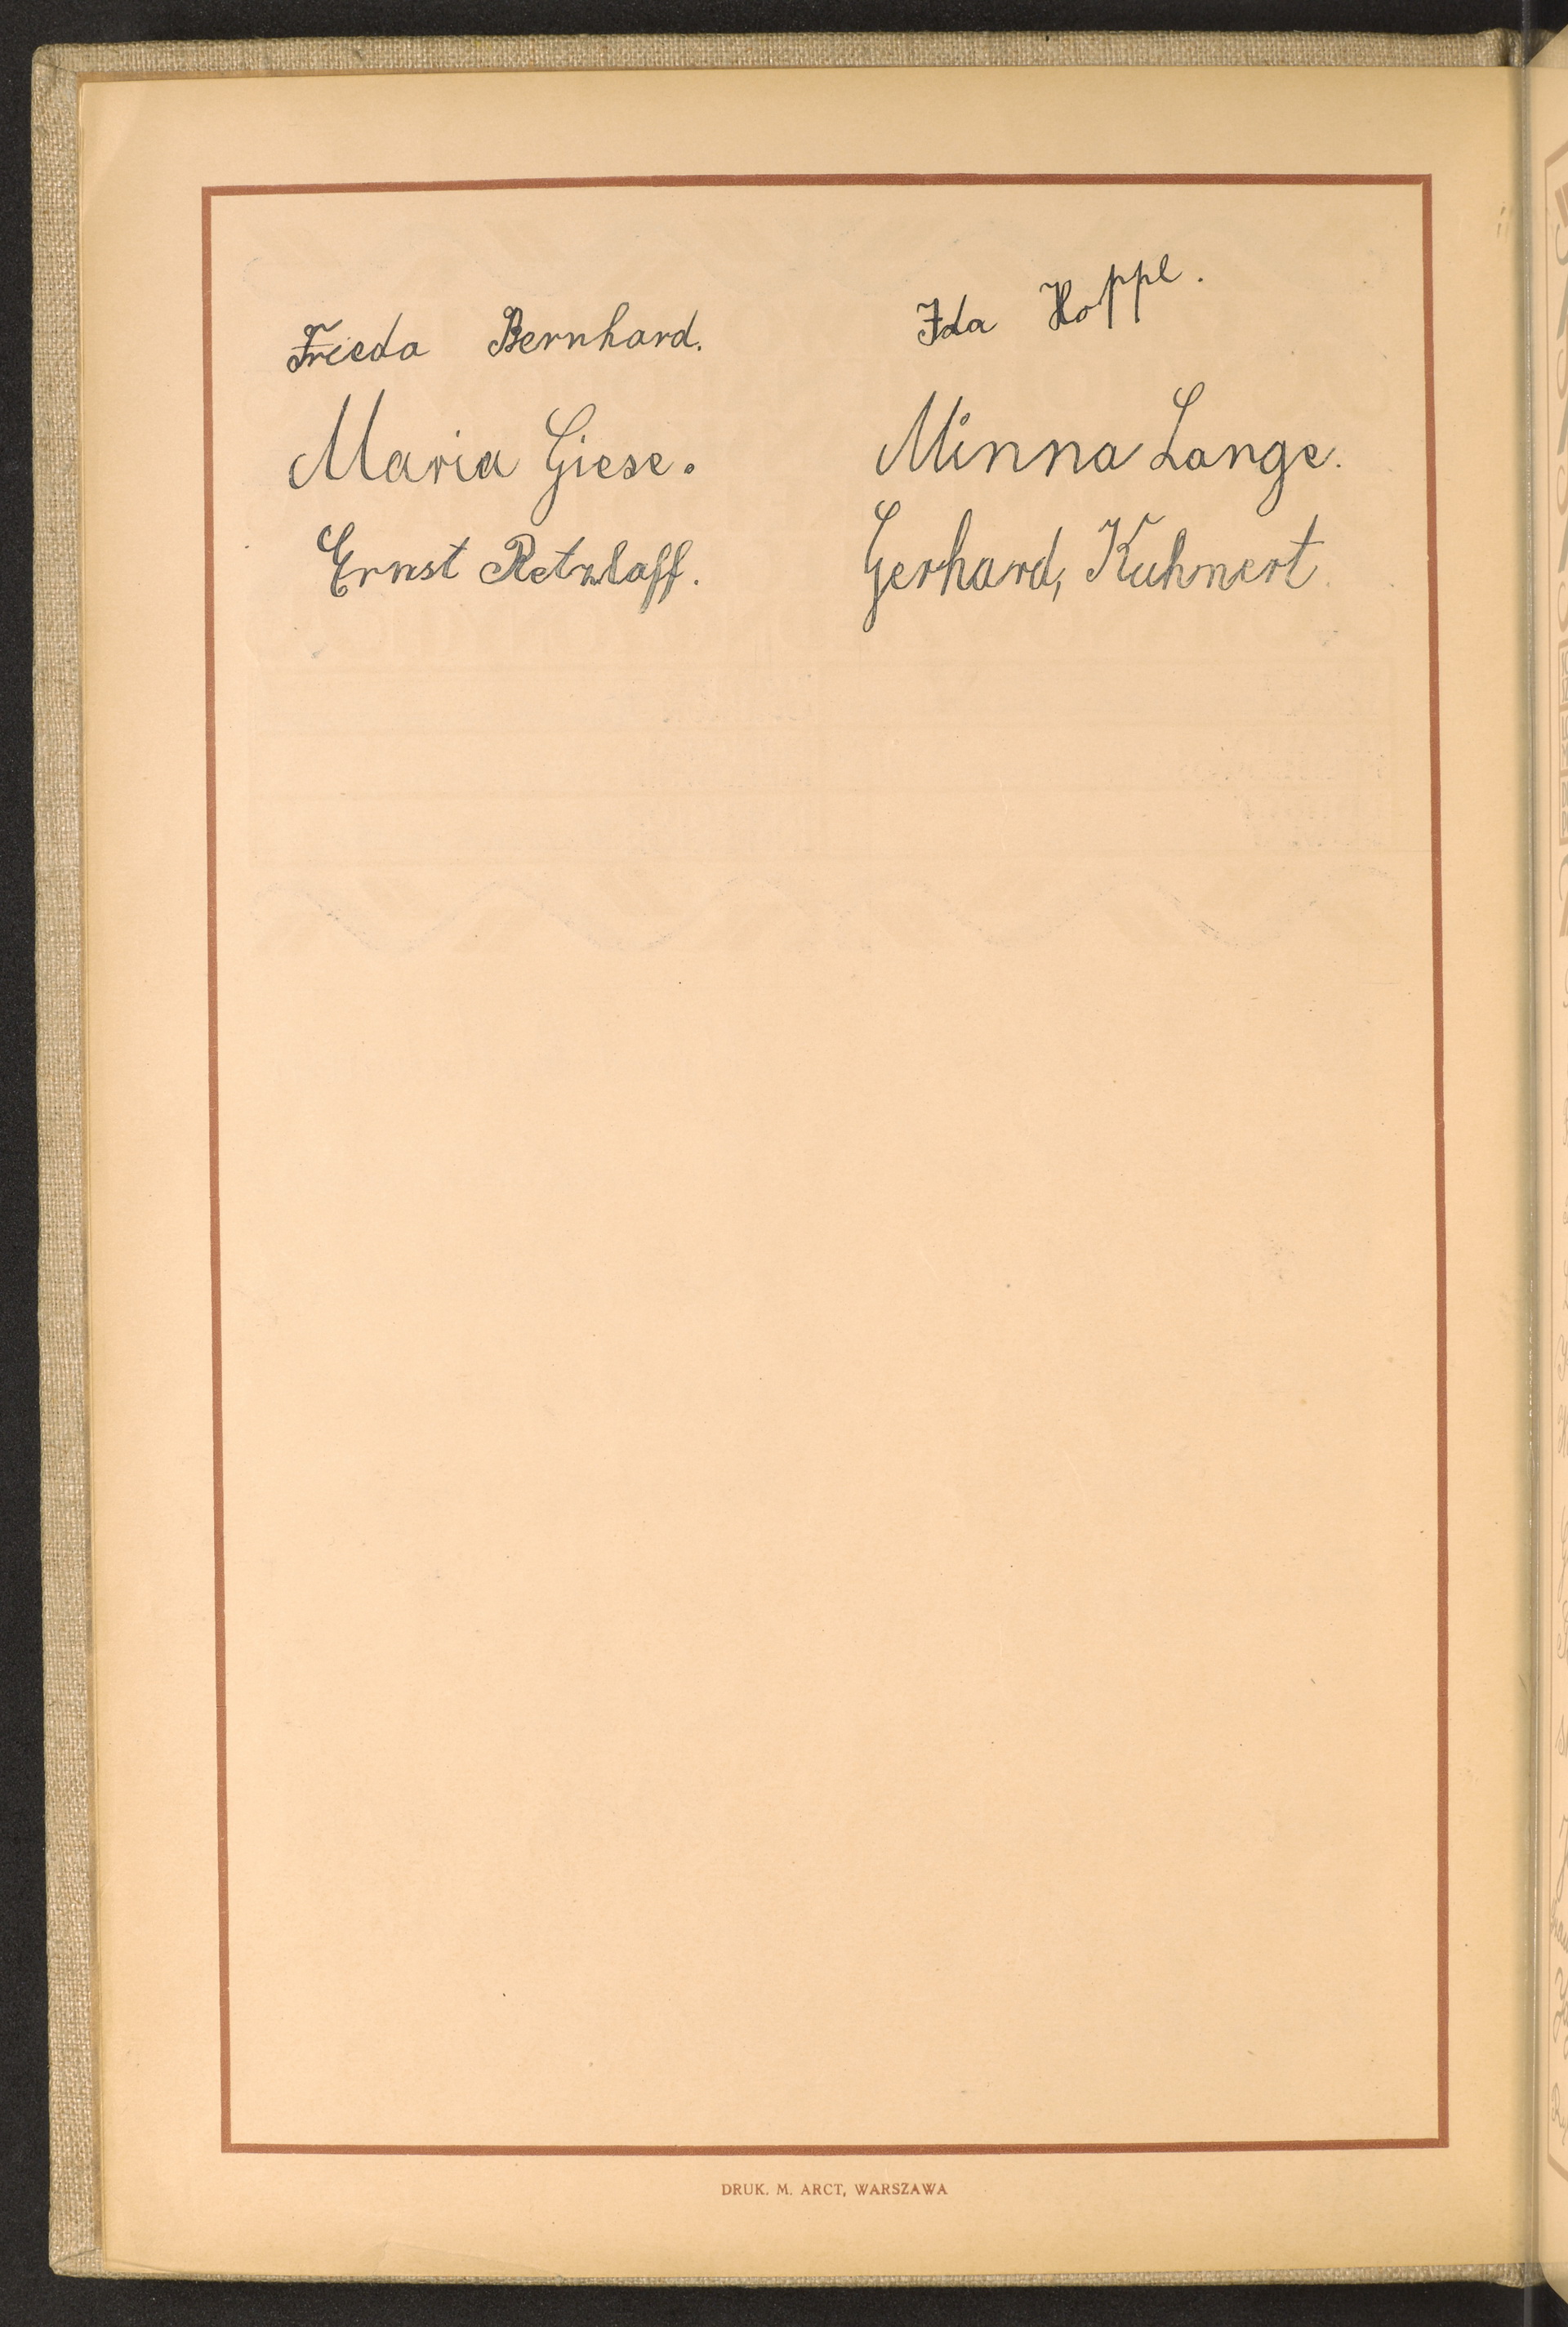 Frieda Bernhard. Ida Hoppe.
Maria Giese. Minna Lange.
Ernst Retzlaff. Gerhard, Kuhnert
DRUK. M. ARCT, WARSZAWA